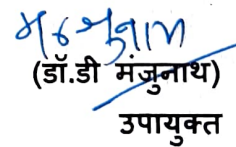 (डॉ.डी मंजुनाथ)
उपायुक्त